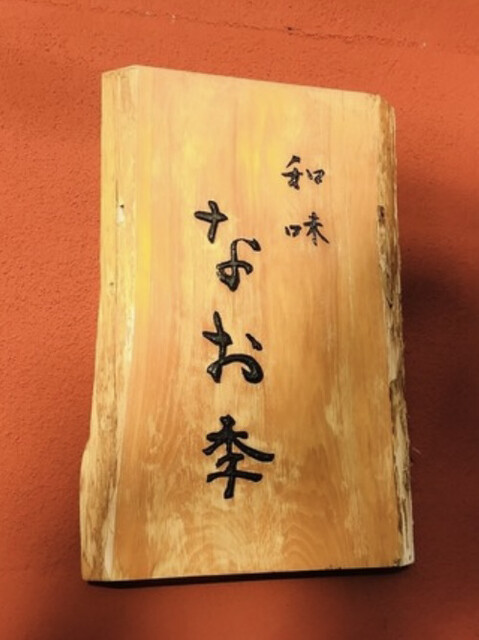 和味
なお季